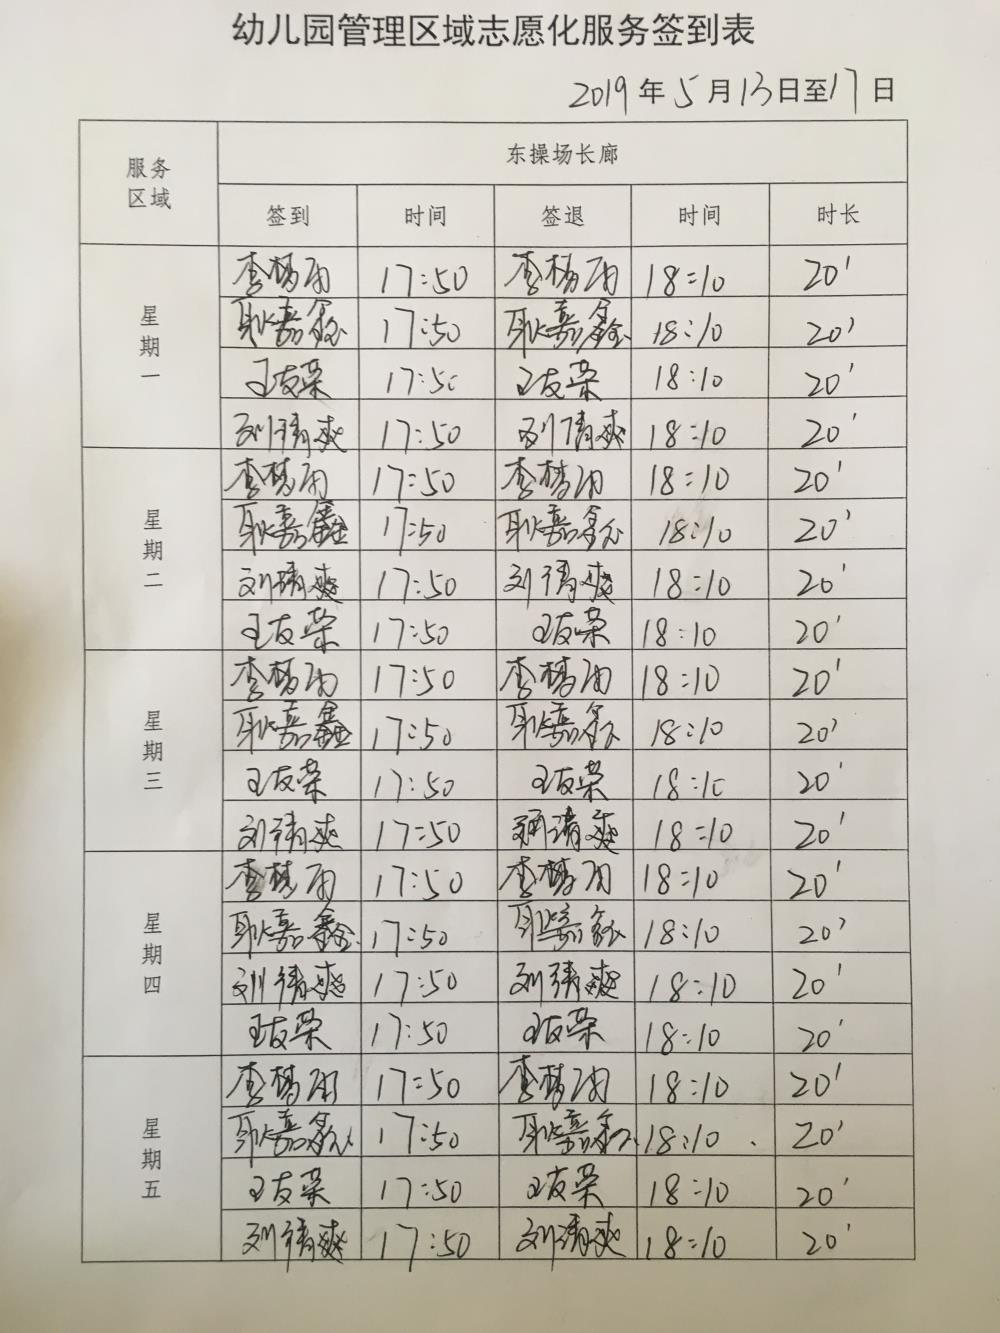 幼儿园管理区域志愿化服务签到表
2019年5月13日至17日
服务区域 东操场长廊
签到 时间 签退 时间 时长
星期一
李梦雨 17:50 李梦雨 18:10 20'
耿嘉鑫 17:50 耿嘉鑫 18:10 20'
王友荣 17:50 王友荣 18:10 20'
刘清爽 17:50 刘清爽 18:10 20'
星期二
李梦雨 17:50 李梦雨 18:10 20'
耿嘉鑫 17:50 耿嘉鑫 18:10 20'
刘清爽 17:50 刘清爽 18:10 20'
王友荣 17:50 王友荣 18:10 20'
星期三
李梦雨 17:50 李梦雨 18:10 20'
耿嘉鑫 17:50 耿嘉鑫 18:10 20'
王友荣 17:50 王友荣 18:10 20'
刘清爽 17:50 刘清爽 18:10 20'
星期四
李梦雨 17:50 李梦雨 18:10 20'
耿嘉鑫 17:50 耿嘉鑫 18:10 20'
刘清爽 17:50 刘清爽 18:10 20'
王友荣 17:50 王友荣 18:10 20'
星期五
李梦雨 17:50 李梦雨 18:10 20'
耿嘉鑫 17:50 耿嘉鑫 18:10 20'
王友荣 17:50 王友荣 18:10 20'
刘清爽 17:50 刘清爽 18:10 20'